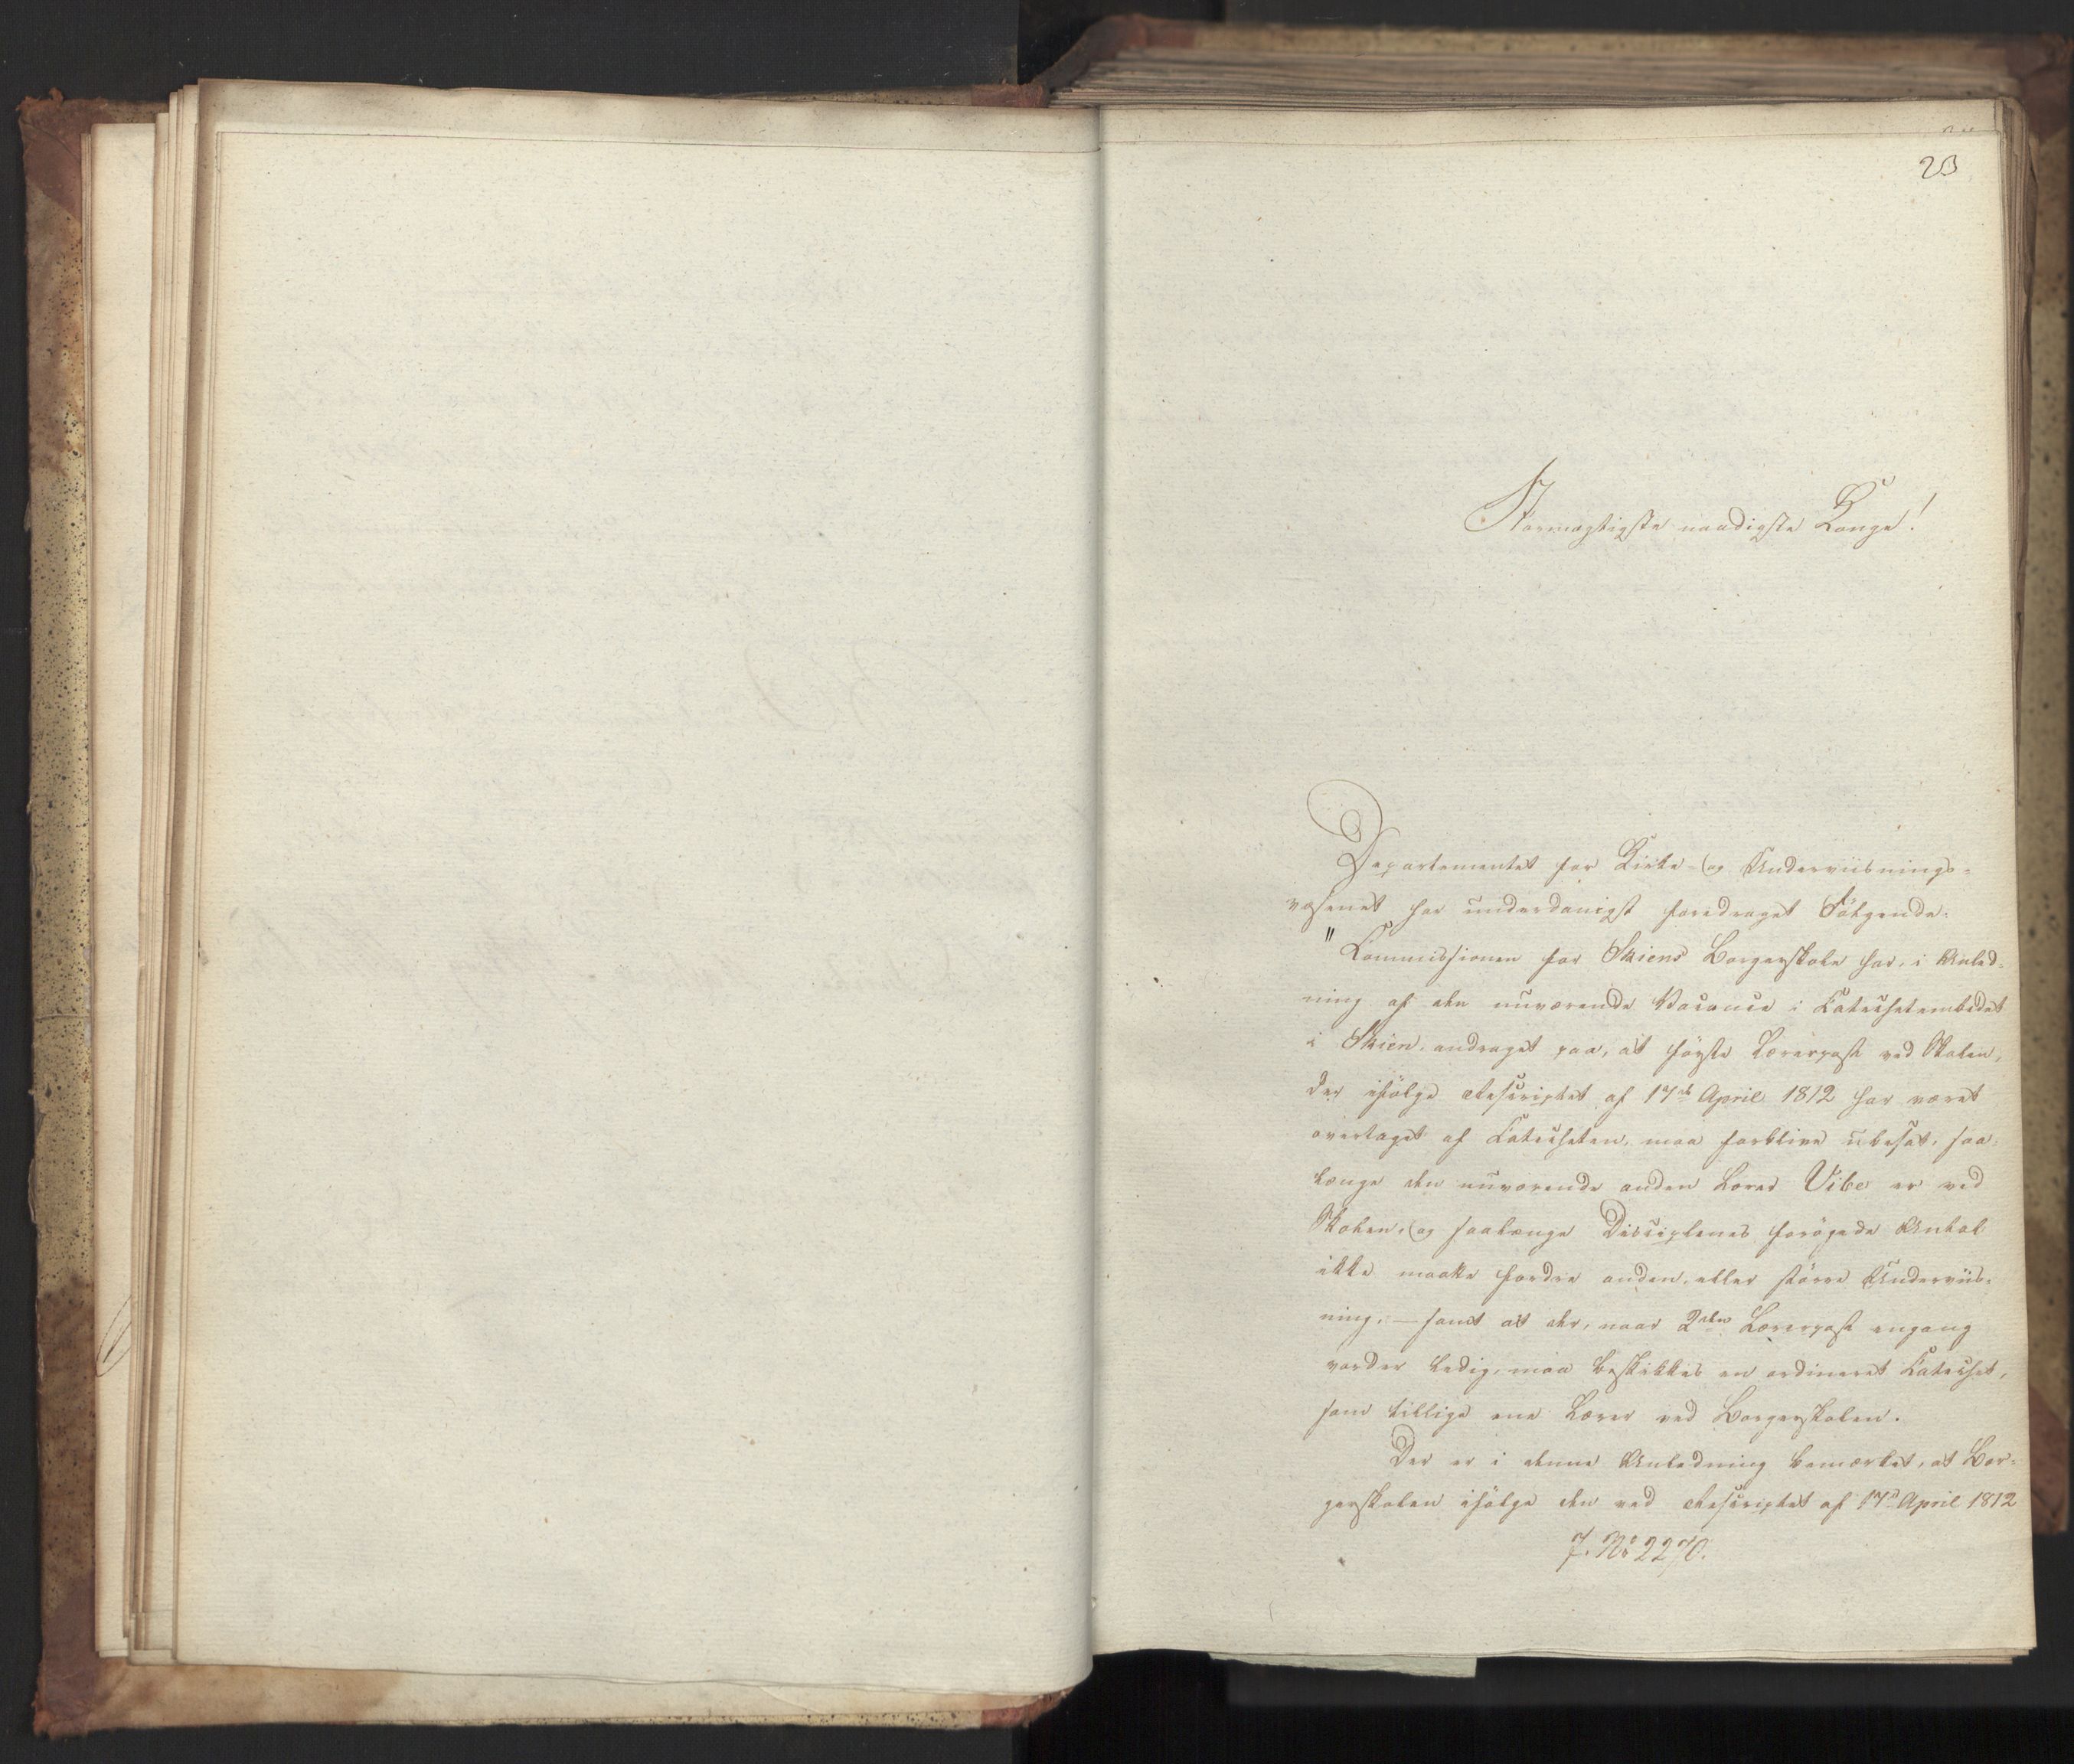 23
Stormægtigste naadigste Konge!
Departementet for Kirke- og Underviisnings-
væsenet har underdanigst foredraget Følgende:
"Commissionen for Skiens Borgerskole har, i Anled-
ning af den nuværende Vacance i Catechetembedet
i Skien, andraget paa, at første Lærerpost ved Skolen,
der ifølge Rescriptet af 17de April 1812 har været
overtaget af Catecheten, maa forblive ubesat, saa-
længe den nuværende anden Lærer Vibe er ved
Skolen, og saalænge Disciplenes forøgede Antal
ikke maatte fordre anden, eller større Underviis-
ning, — samt at der, naar 2den Lærerpost engang
vorder ledig, maa beskikkes en ordineret Catechet,
som tillige ene Lærer ved Borgerskolen.
Der er i denne Anledning bemærket, at Bor-
gerskolen ifølge den ved Rescriptet af 17d April 1812
J. No 2270.